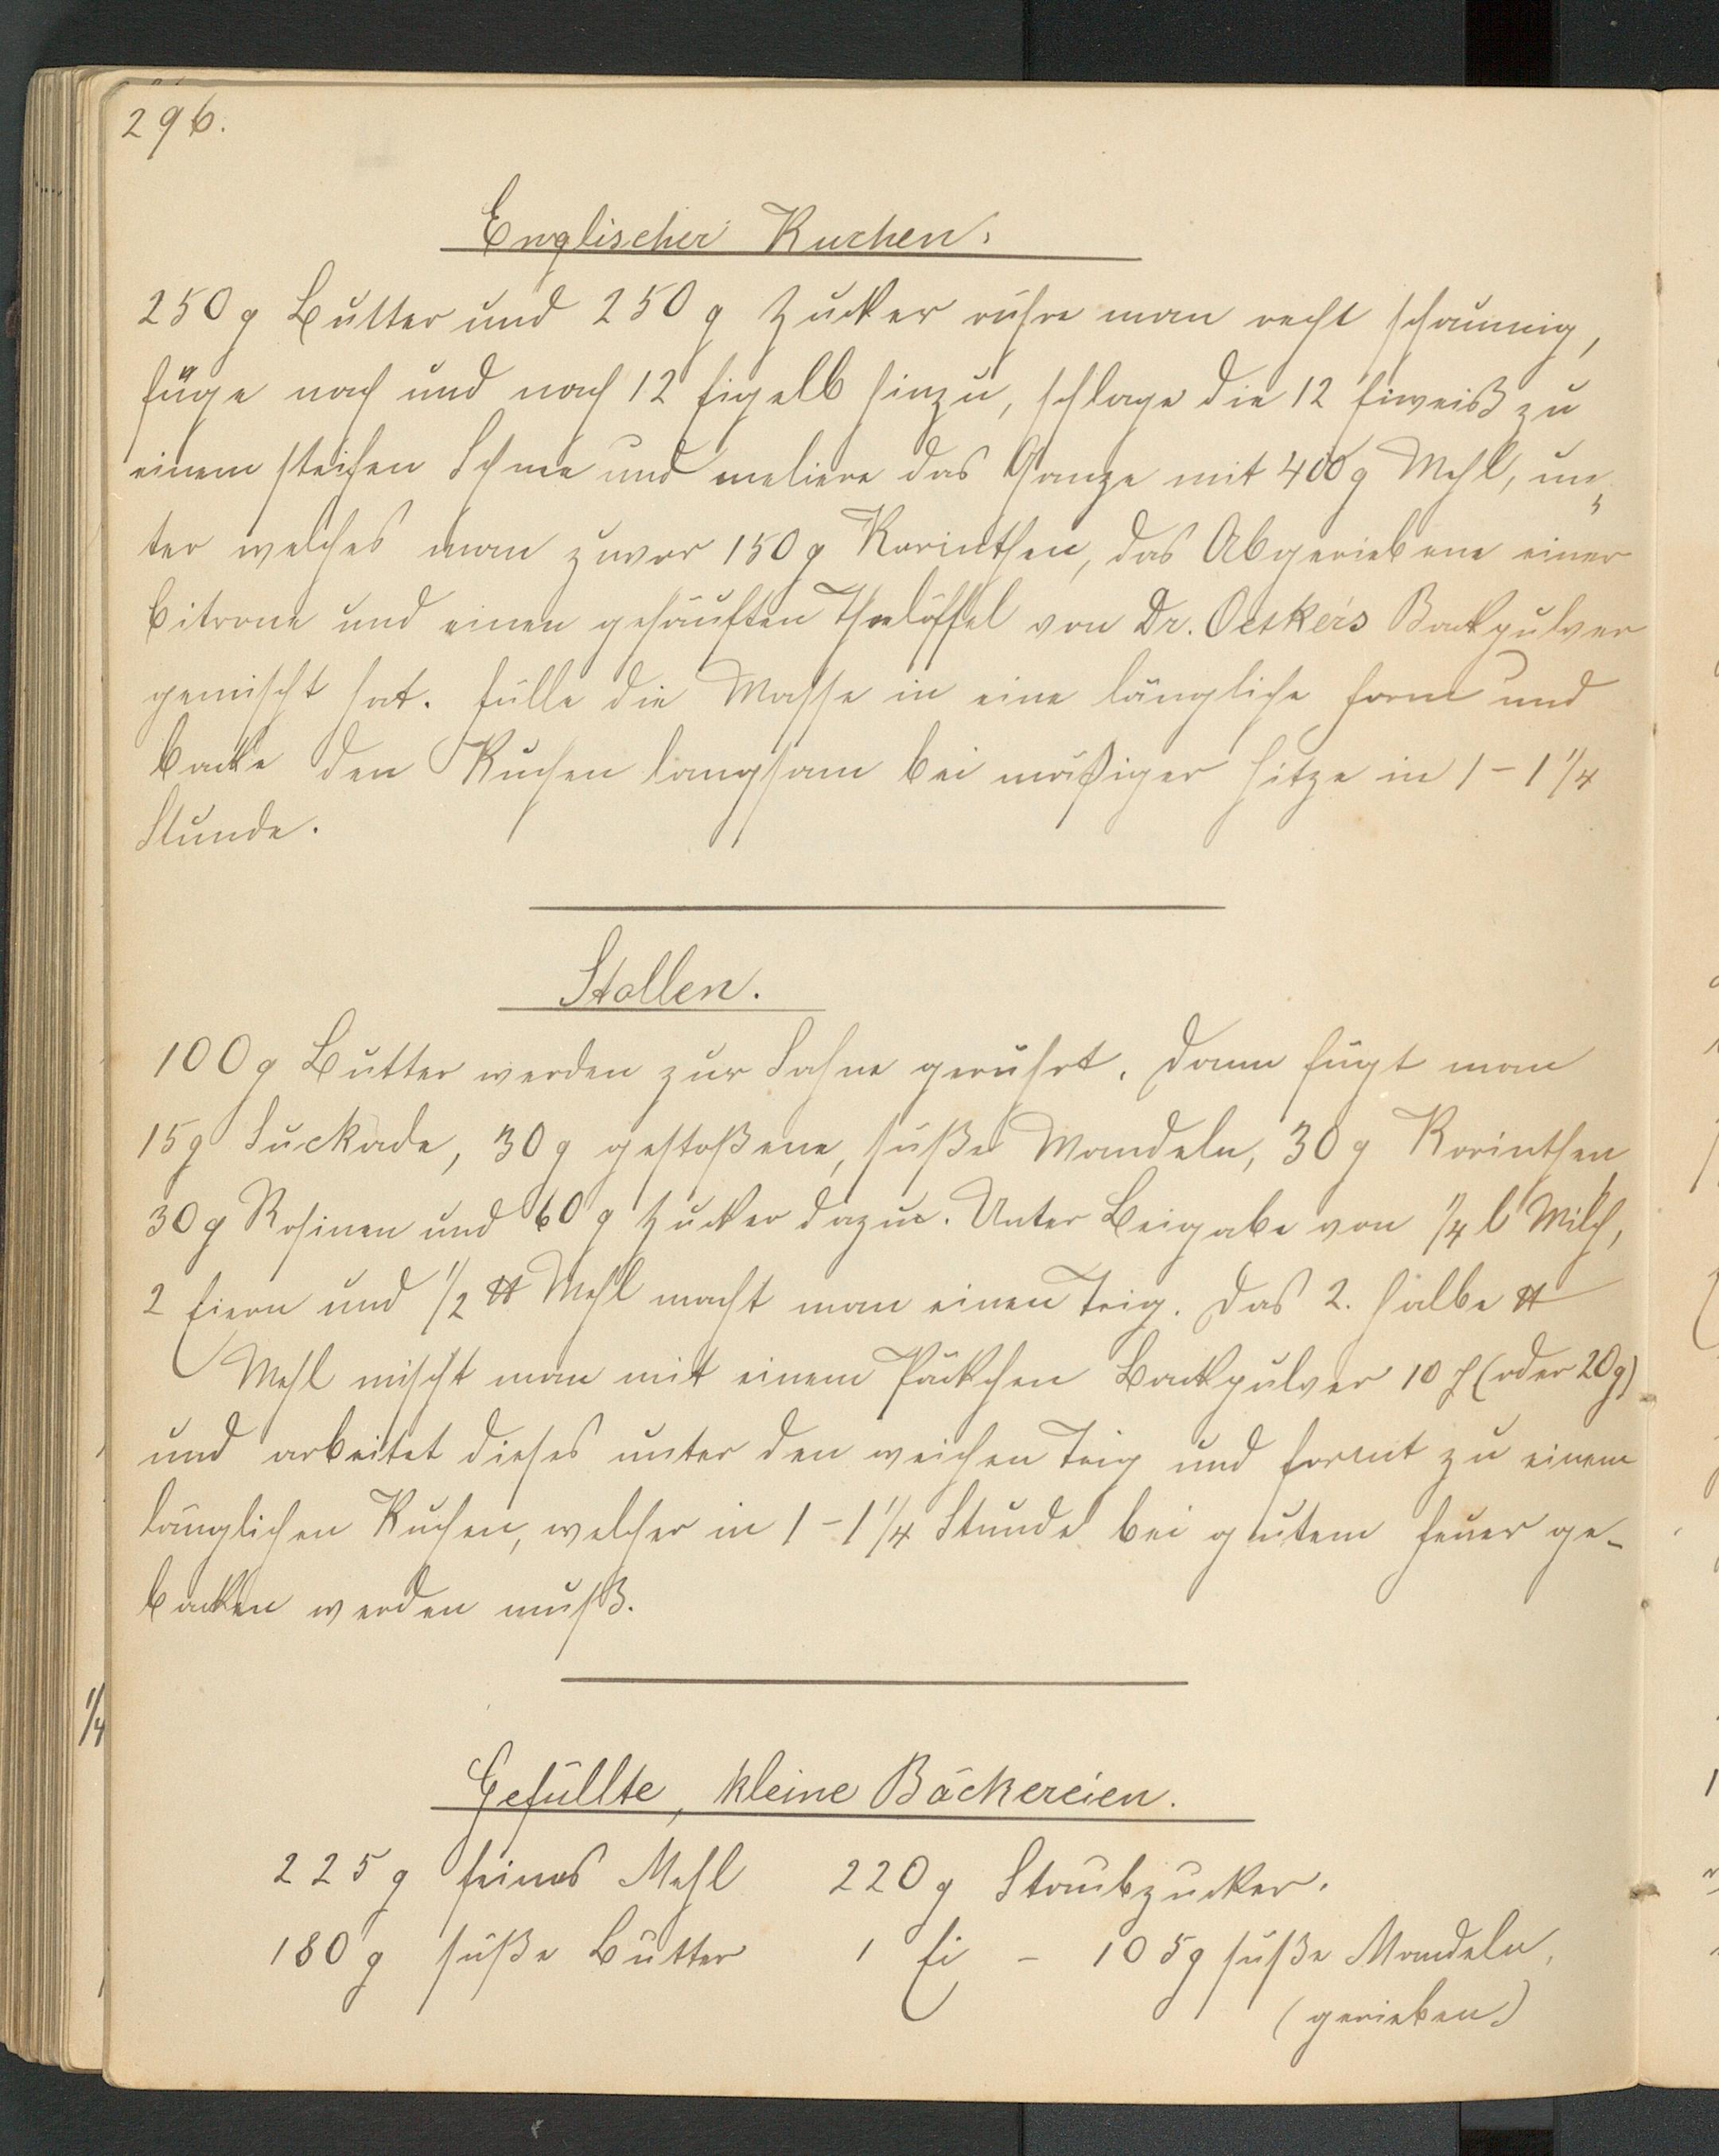 296.
Englischer Kuchen.
250 g Butter und 250 g Zucker rühre man recht schaumig,
füge nach und nach 12 Eigelb hinzu, schlage die 12 Eiweiß zu
einem steifen Schnee und meliere das Ganze mit 400 g Mehl, un-
ter welches man zuvor 150 g Korinthen, das Abgeriebene einer
Citrone und einen gehäuften Theelöffel von Dr. Oetker's Backpulver
gemischt hat. Fülle die Masse in eine längliche Form und
backe den Kuchen langsam bei mäßiger Hitze in 1 - 1 1/4
Stunde.
Stollen.
100 g Butter werden zur Sahne gerührt. Dann fügt man
15 g Suckade, 30 g gestoßene, süße Mandeln, 30 g Korinthen
30 g Rosinen und 60 g Zucker dazu. Unter Beigabe von 1/4 l Milch,
2 Eiern und 1/2 ℔ Mehl macht man einen Teig. Das 2. halbe ℔
Mehl mischt man mit einem Päckchen Backpulver 10 ₰ (oder 20 g)
und arbeitet dieses unter den weichen Teig und formt zu einem
länglichen Kuchen, welcher in 1 - 1 1/4 Stunde bei gutem Feuer ge-
backen werden muß.
1/4
Gefüllte, kleine Bäckereien.
225 g feines Mehl 220 g Staubzucker.
180 g süße Butter 1 Ei - 105 g süße Mandeln,
(gerieben)